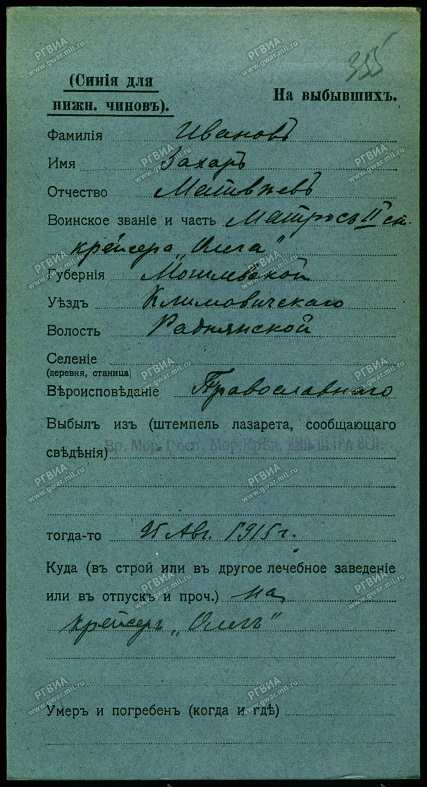 355
(Синія для нижн. чиновъ).
На выбывшихъ.
Фамилія Ивановъ
Имя Захаръ
Отчество Матвѣевъ
Воинское званіе и часть Матросъ II ст.
крейсера "Олега"
Губернія Могилевской
Уѣздъ Климовичскаго
Волость Раднянской
Селеніе
(деревня, станица)
Вѣроисповѣданіе Православнаго
Выбылъ из (штемпель лазарета, сообщающаго
свѣдѣнія) Вр. Мор. Госп. Мор. Крѣп. ИМП. ПЕТРА ВЕЛ.
тогда-то 25 Авг. 1915 г.
Куда (въ строй или въ другое лечебное заведеніе
или въ отпускъ и проч.) на
крейсеръ "Олегъ"
Умеръ и погребенъ (когда и гдѣ)
РГВИА
www.gwar.mil.ru